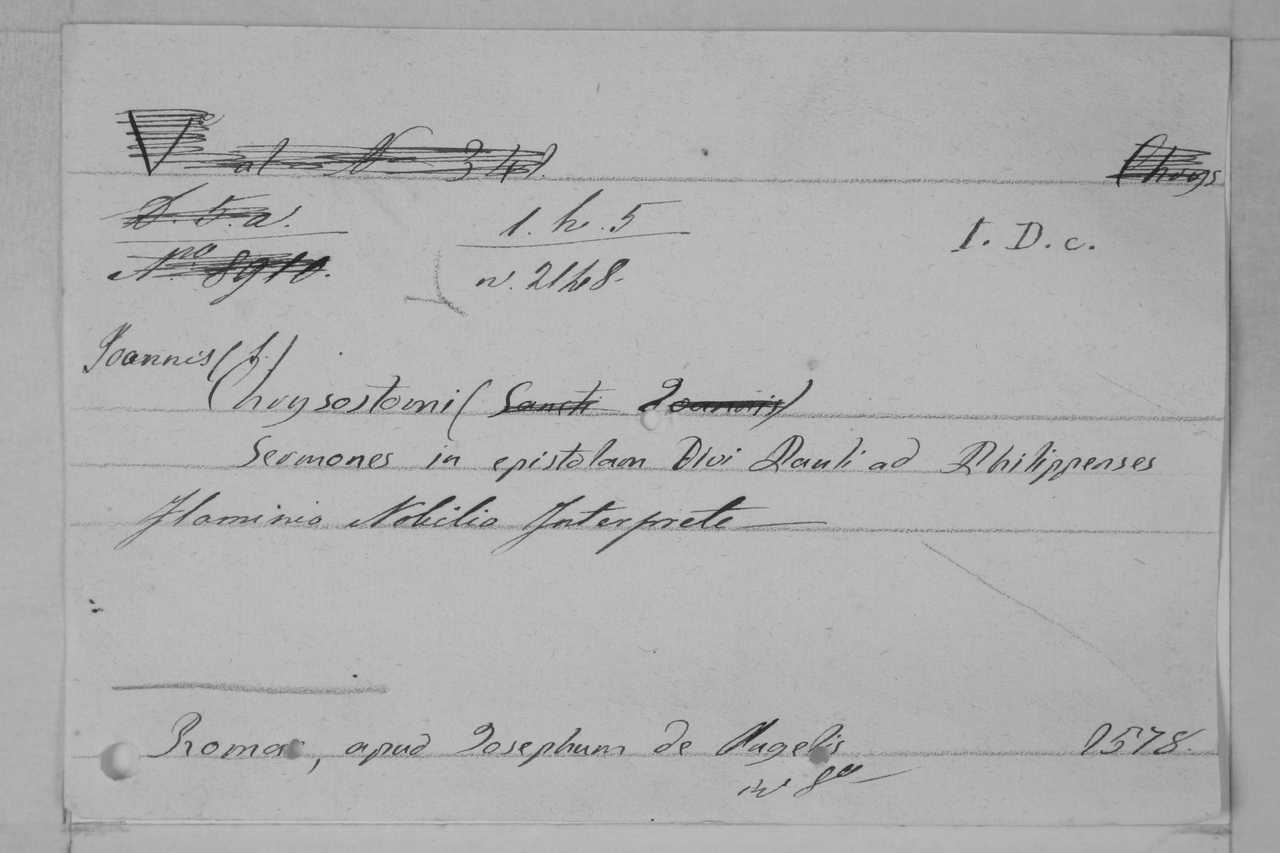 Chrys
D. 5. a. 1. h. 5 I. D. c.
Nº 8910. n. 2148
Joannis (S.)
Chrysostomi (Sancti Joannis)
Sermones in epistolam Divi Pauli ad Philippenses
Flaminio Nobilio Interprete
Romae, apud Josephum de Angelis 1578.
in 8º